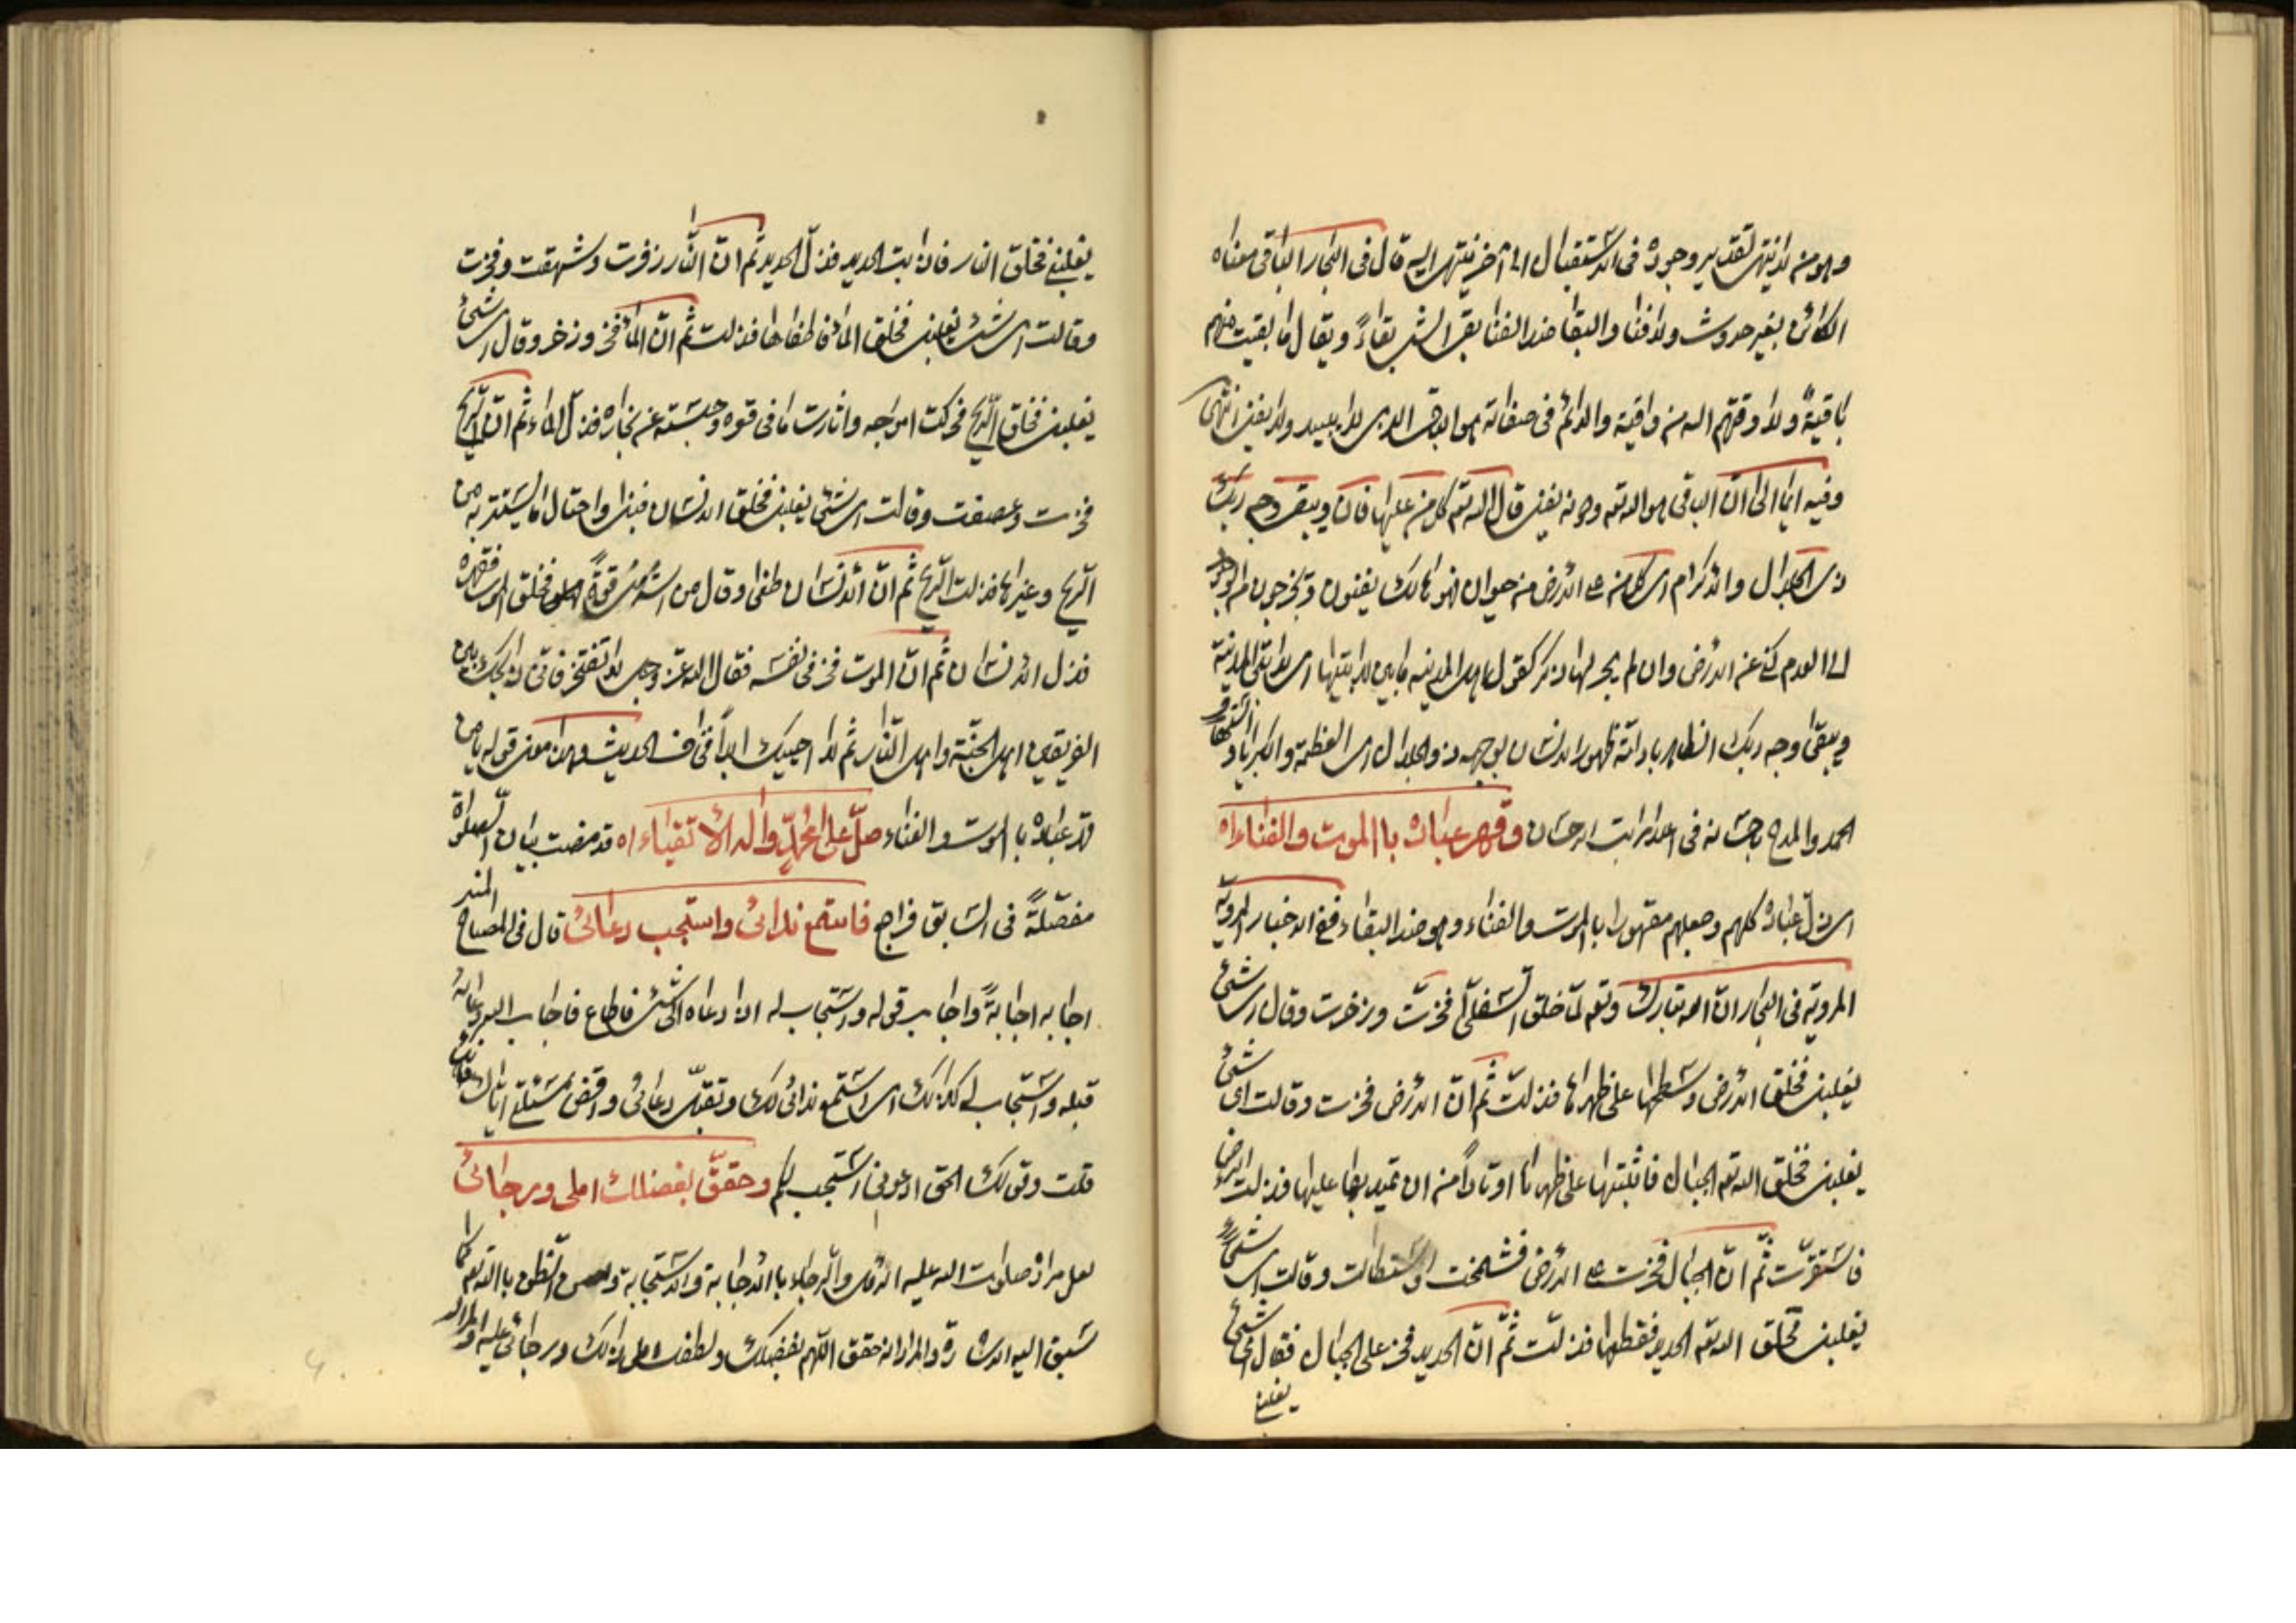 وهو من لا ينتهى تقدير وجوده فى الاستقبال الى آخر ينتهى اليه قال فى البحار الباقى معناه
الكائن بغير حدوث ولا فناء والبقاء ضد الفناء بقى الشئ بقاءً ويقال ما بقيت منهم
باقيةً ولا وقتهم الله من واقية والدائم فى صفاته هو الباقى الذى لا يبيد ولا يفنى انتهى
وفيه ايماء الى انّ الباقى هو الله تعه وحده يفنى قال الله تعه كل من عليها فان ويبقى وجه ربك
ذى الجلال والاكرام اى كل من على الارض من حيوان فهو هالك يفنون ويخرجون من الوجود
الى العدم كنى عن الارض وان لم يجر لها ذكر كقول اهل المدينه ما بين لابتيها اى لابتى المدينة
ويبقى وجه ربك الظاهر بادلته ظهور الانسان بوجهه ذو الجلال اى العظمة والكبرياء و
الحمد والمدح باحسانه فى اعلا مراتب الاحسان وقهر عباده باالموت والفناء اه
اى ذلّ عباده كلهم وجعلهم مقهورا بالموت والفناء وهو ضد البقاء ففى الاخبار المروية
المروية فى البحار انّ الله تبارك وتعه لمّا خلق السّفلى فخرت وزخرت وقال اى شئ
يغلبنى فخلق الارض وسطحها على ظهرها فذلت ثمّ انّ الارض فخرت وقالت اى شئ
يغلبنى فخلق الله تعه الجبال فاثبتها على ظهرها اوتاداً من ان تميد بما عليها فذلت الارض
فاستقرّت ثمّ انّ الجبال فخرت على الارض فشمخت واستطالت وقالت اى شئ
يغلبنى فخلق الله تعه الحديد فقطعها فذلّت ثمّ انّ الحديد فخر على الجبال فقال اى شئ
يغلبنى
يغلبنى فخلق النار فاذابت الحديد فذلّ الحديد ثم انّ النّار زفرت وشهقت وفخرت
وقالت اى شئ يغلبنى فخلق الماء فاطفاها فذلت ثم انّ الماء فخر وزخر وقال اى شئ
يغلبنى فخلق الرّيح فحركت امواجه واثارت ما فى قعره وحبسته عن مجاره فذلّ الماء ثم انّ الرّيح
فخرت وعصفت وقالت اى شئ يغلبنى فخلق الانسان فبنى واحتال ما يستتر به من
الرّيح وغيرها فذلت الرّيح ثم انّ الانسان طغى وقال من اشدّ منى قوةً فخلق الموت فقهره
فذل الانسان ثم انّ الموت فخر فى نفسه فقال الله عزّ وجل لا تفتخر فانّى ذابحك بين
الفريقين اهل الجنّة واهل النّار ثم لا احييك ابداً الحديث وهذا معنى قوله يا من
قهر عباده باالموت والفناء صلّ على محمّد واله الاتقياء اه قد مضت بيان الصلوة
مفصّلةً فى السّابق فراجع فاستمع ندائى واستجب دعائى قال فى المصباح المنير
اجابه اجابةً واجاب قوله واستجاب له اذا دعاه الى شئ فاطاع فاجاب الله دعائه
قبله واستجاب له كذلك اى استمع ندائى لك وتقبّل دعائى واقض مسئلتى ايّاك فانك
قلت وقولك الحق ادعونى استجب لكم وحقّق بفضلك املى ورجائى
لعل مراده صلوات الله عليه الامل والرّجاء باالاجابة والاستجابة الظن باالله تعه كما
سبق اليه الاشارة والمراد انه حقق اللهم بفضلك ولطفك املى لذلك ورجائى